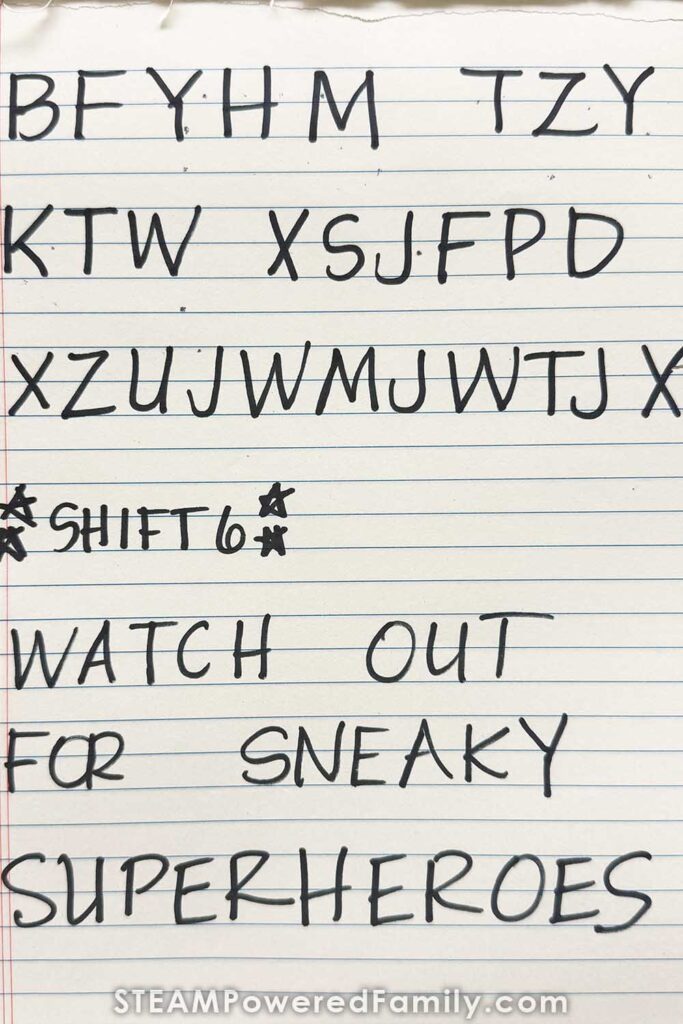 BFYHM TZY
KTW XSJFPD
XZUJWMJWTJX
SHIFT 6
WATCH OUT
FOR SNEAKY
SUPERHEROES
STEAMPoweredFamily.com